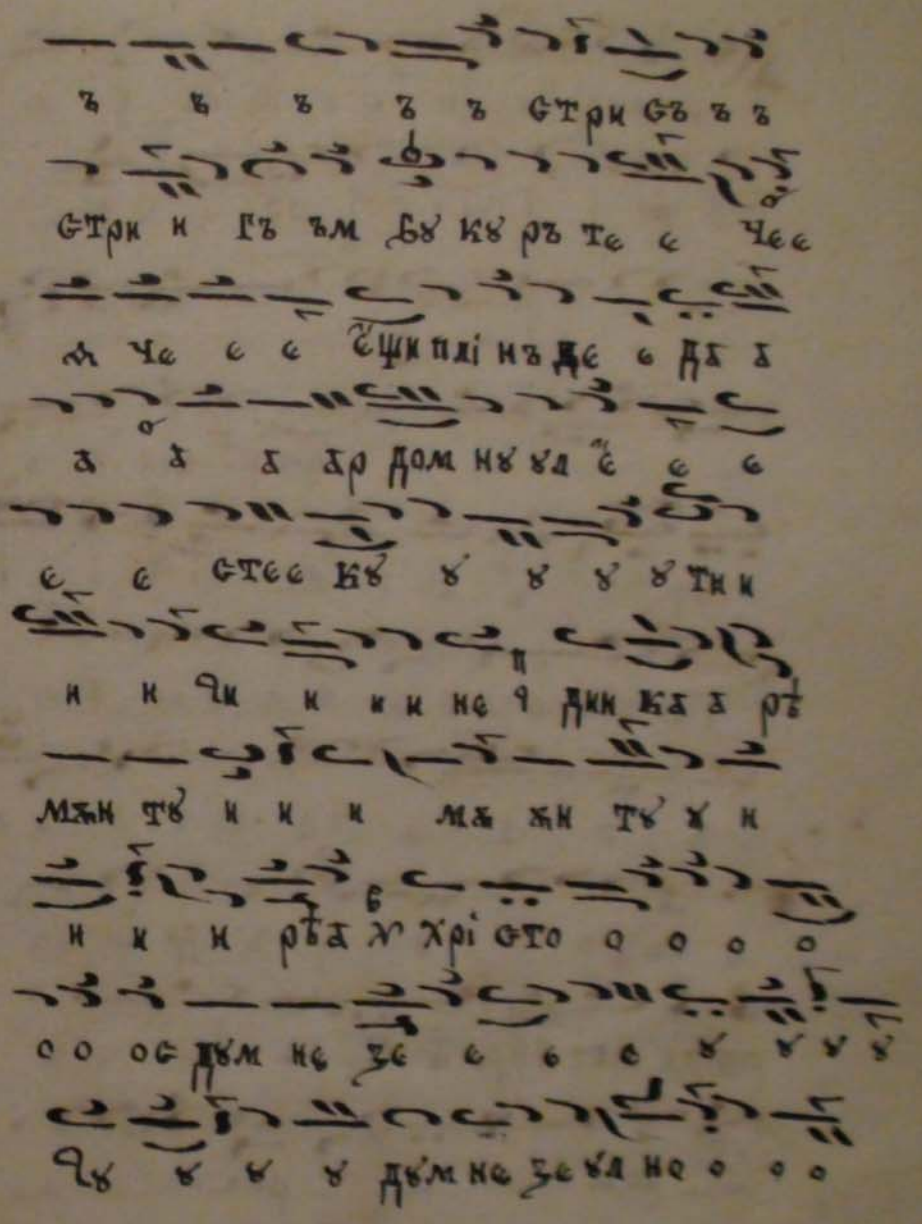 ъ ъ ъ ъ ъ стри съ ъ ъ
стри и гъ ъм бꙋ кꙋ ръ те е чее
ѧ че е е ещи плі нъ де е да а
а а а ар дом нꙋ ꙋл е е е
е е стее кꙋ ꙋ ꙋ ꙋ ꙋ ти и
и и чи и и и не дин ка а рѣ
мѫн тꙋ и и и мѫ ѫн тꙋ ꙋ и
и и и рѣа хрі сто о о о о
о о ос дꙋм не зе е е е ꙋ ꙋ ꙋ ꙋ
чꙋ ꙋ ꙋ ꙋ дꙋм не зе ꙋл но о о о